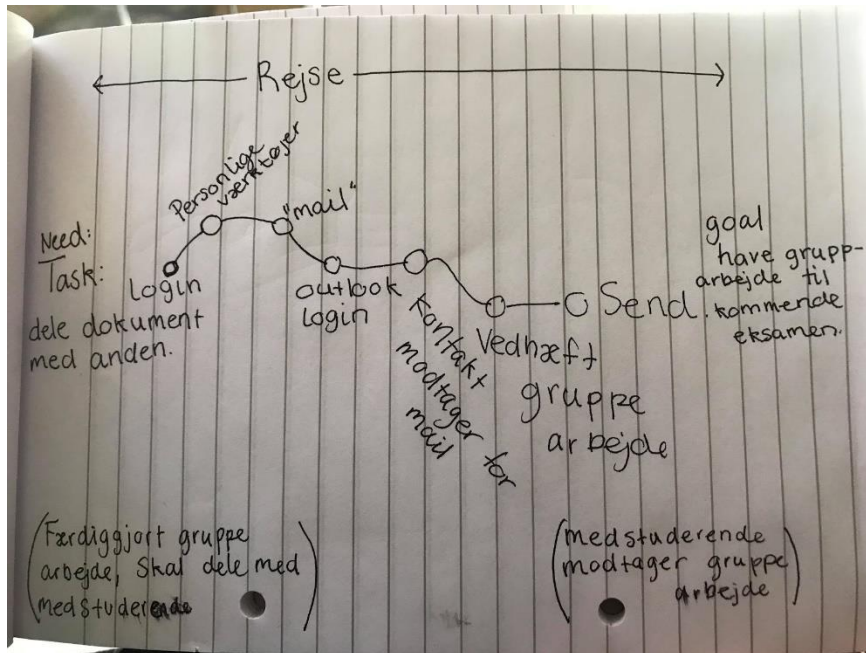 Rejse
Personlige
værktøjer
"mail"
Need:
Task:
dele dokument
med anden.
Login
outlook
login
kontakt
modtager for
mail
Vedhæft
gruppe
arbejde
Send
goal
have grupp-
arbejde til
kommende
eksamen.
(Færdiggjort gruppe
arbejde, skal dele med
medstuderende)
(medstuderende
modtager gruppe
arbejde)